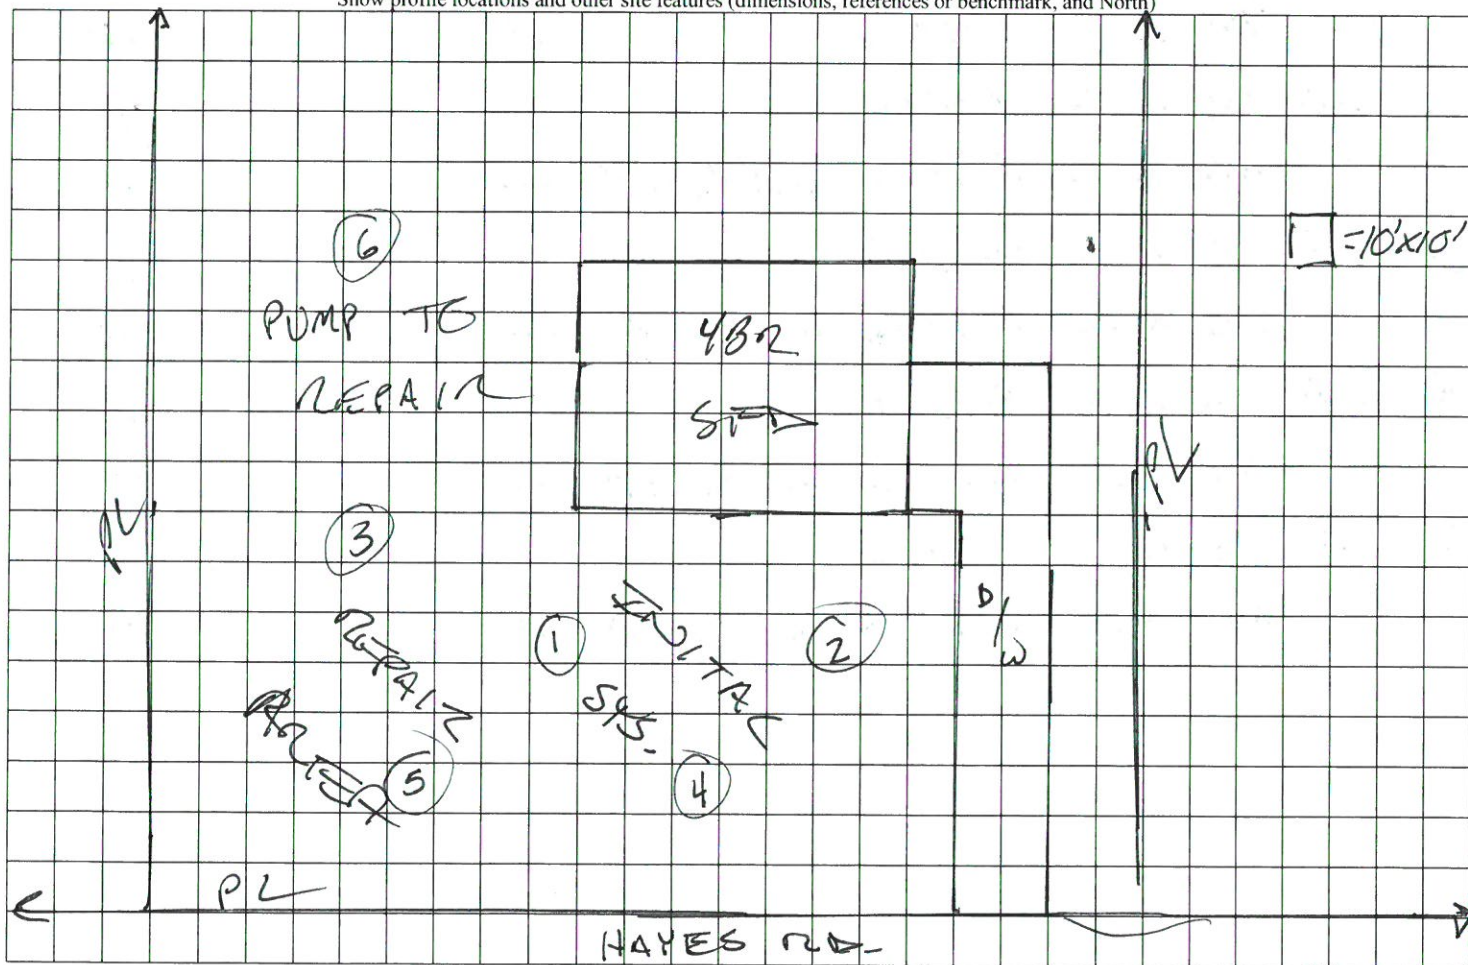 Show profile locations and other site features (dimensions, references or benchmark, and North)
6
=10'x10'
PUMP TO
REPAIR
4BR
SFD
PL
PL
3
D/W
1
INITIAL
SYS.
2
REPAIR
5
4
PL
HAYES RD.